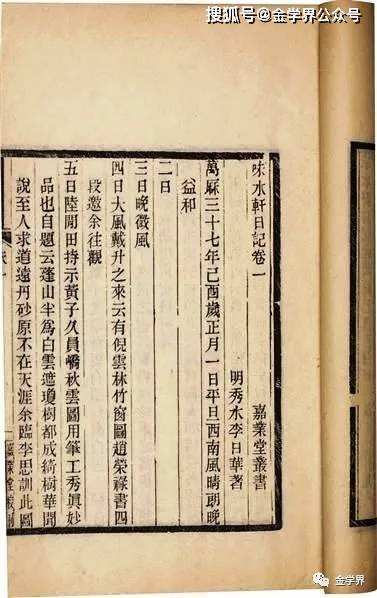 搜狐号@金学界公众号
味水軒日記卷一
嘉業堂叢書
明秀水李日華著
萬厤三十七年己酉歲正月一日平旦西南風晴朗晚
益和
二日
三日晚微風
四日大風戴升之來云有倪雲林竹窗圖趙榮祿書四
段邀余往觀
五日陸閒田持示黃子久員嶠秋雲圖用筆工秀眞妙
品也自題云蓬山半爲白雲遮瓊樹都成綺樹華聞
說至人求道遠丹砂原不在天涯余臨李思訓此圖
金学界